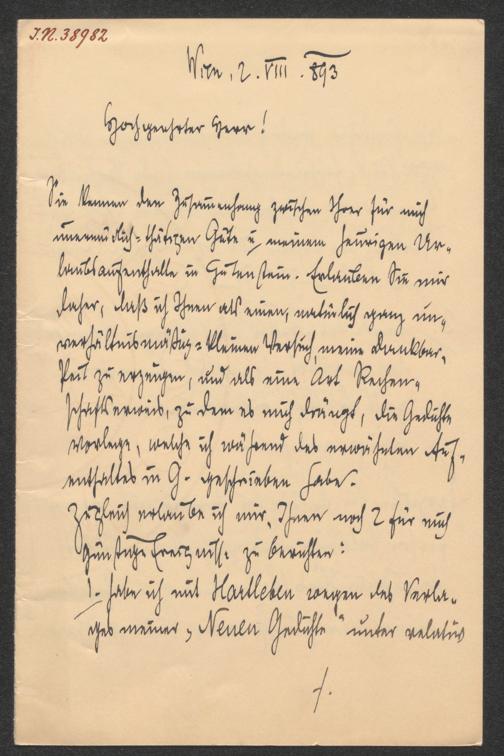 I.N. 38982
Wien, 2. VIII. 893
Hochgeehrter Herr!
Sie kennen den Zusammenhang zwischen Ihrer für mich
unermüdlich=thätigen Güte u. meinem heurigen Ur-
laubsaufenthalte in Gutenstein. Erlauben Sie mir
daher, daß ich Ihnen als einen, natürlich ganz un-
verhältnismäßig=kleinen Versuch, meine Dankbar-
keit zu erzeugen, und als eine Art Rechen-
schaftserweis, zu dem es mich drängt, die Gedichte
vorlege, welche ich während des erwähnten Auf-
enthaltes in G. geschrieben habe.
Zugleich erlaube ich mir, Ihnen noch 2 für mich
günstige Ereignisse zu berichten:
1. habe ich mit Hartleben wegen des Verla-
ges meiner „Neuen Gedichte" unter relativ
/.